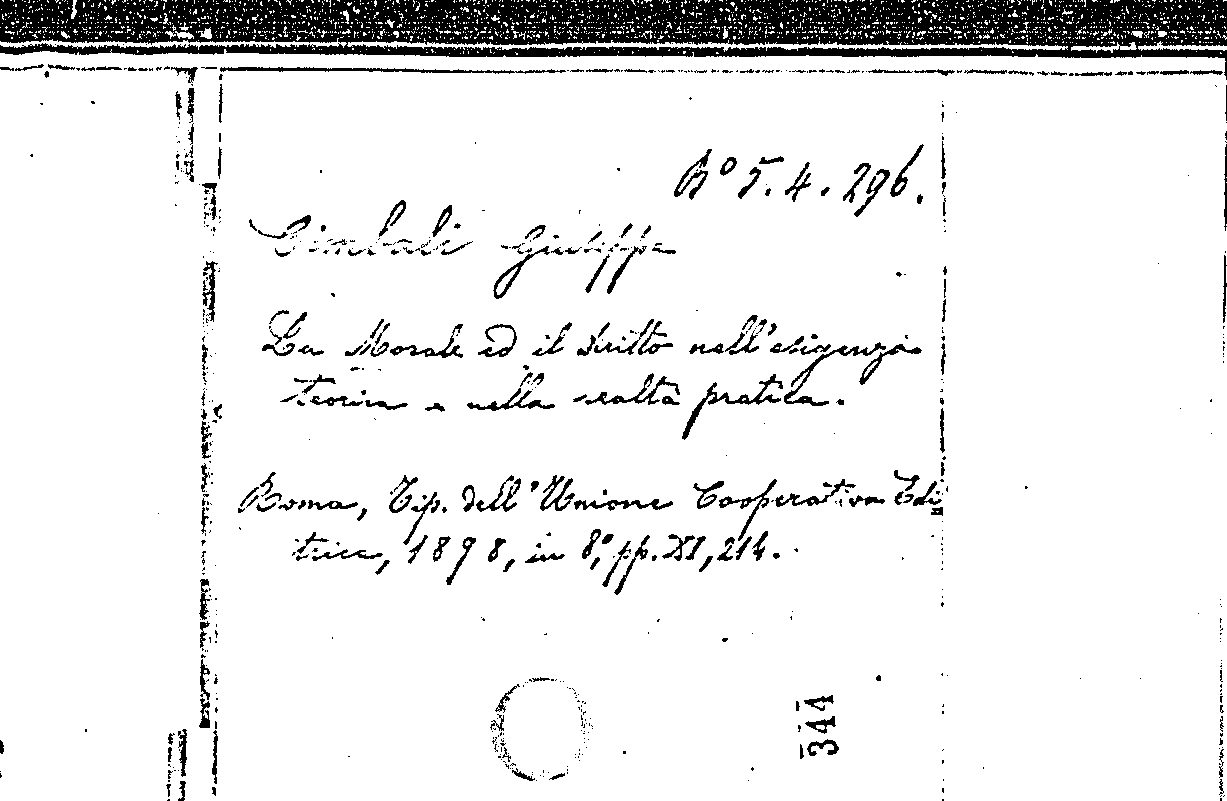 Bº 5. 4. 296.
Cimbali Giuseppe
La Morale ed il diritto nell'esigenza
teorica e nella realtà pratica.
Roma, Tip. dell'Unione Cooperativa Edi
trice, 1898, in 8º, pp. XI, 214.
344